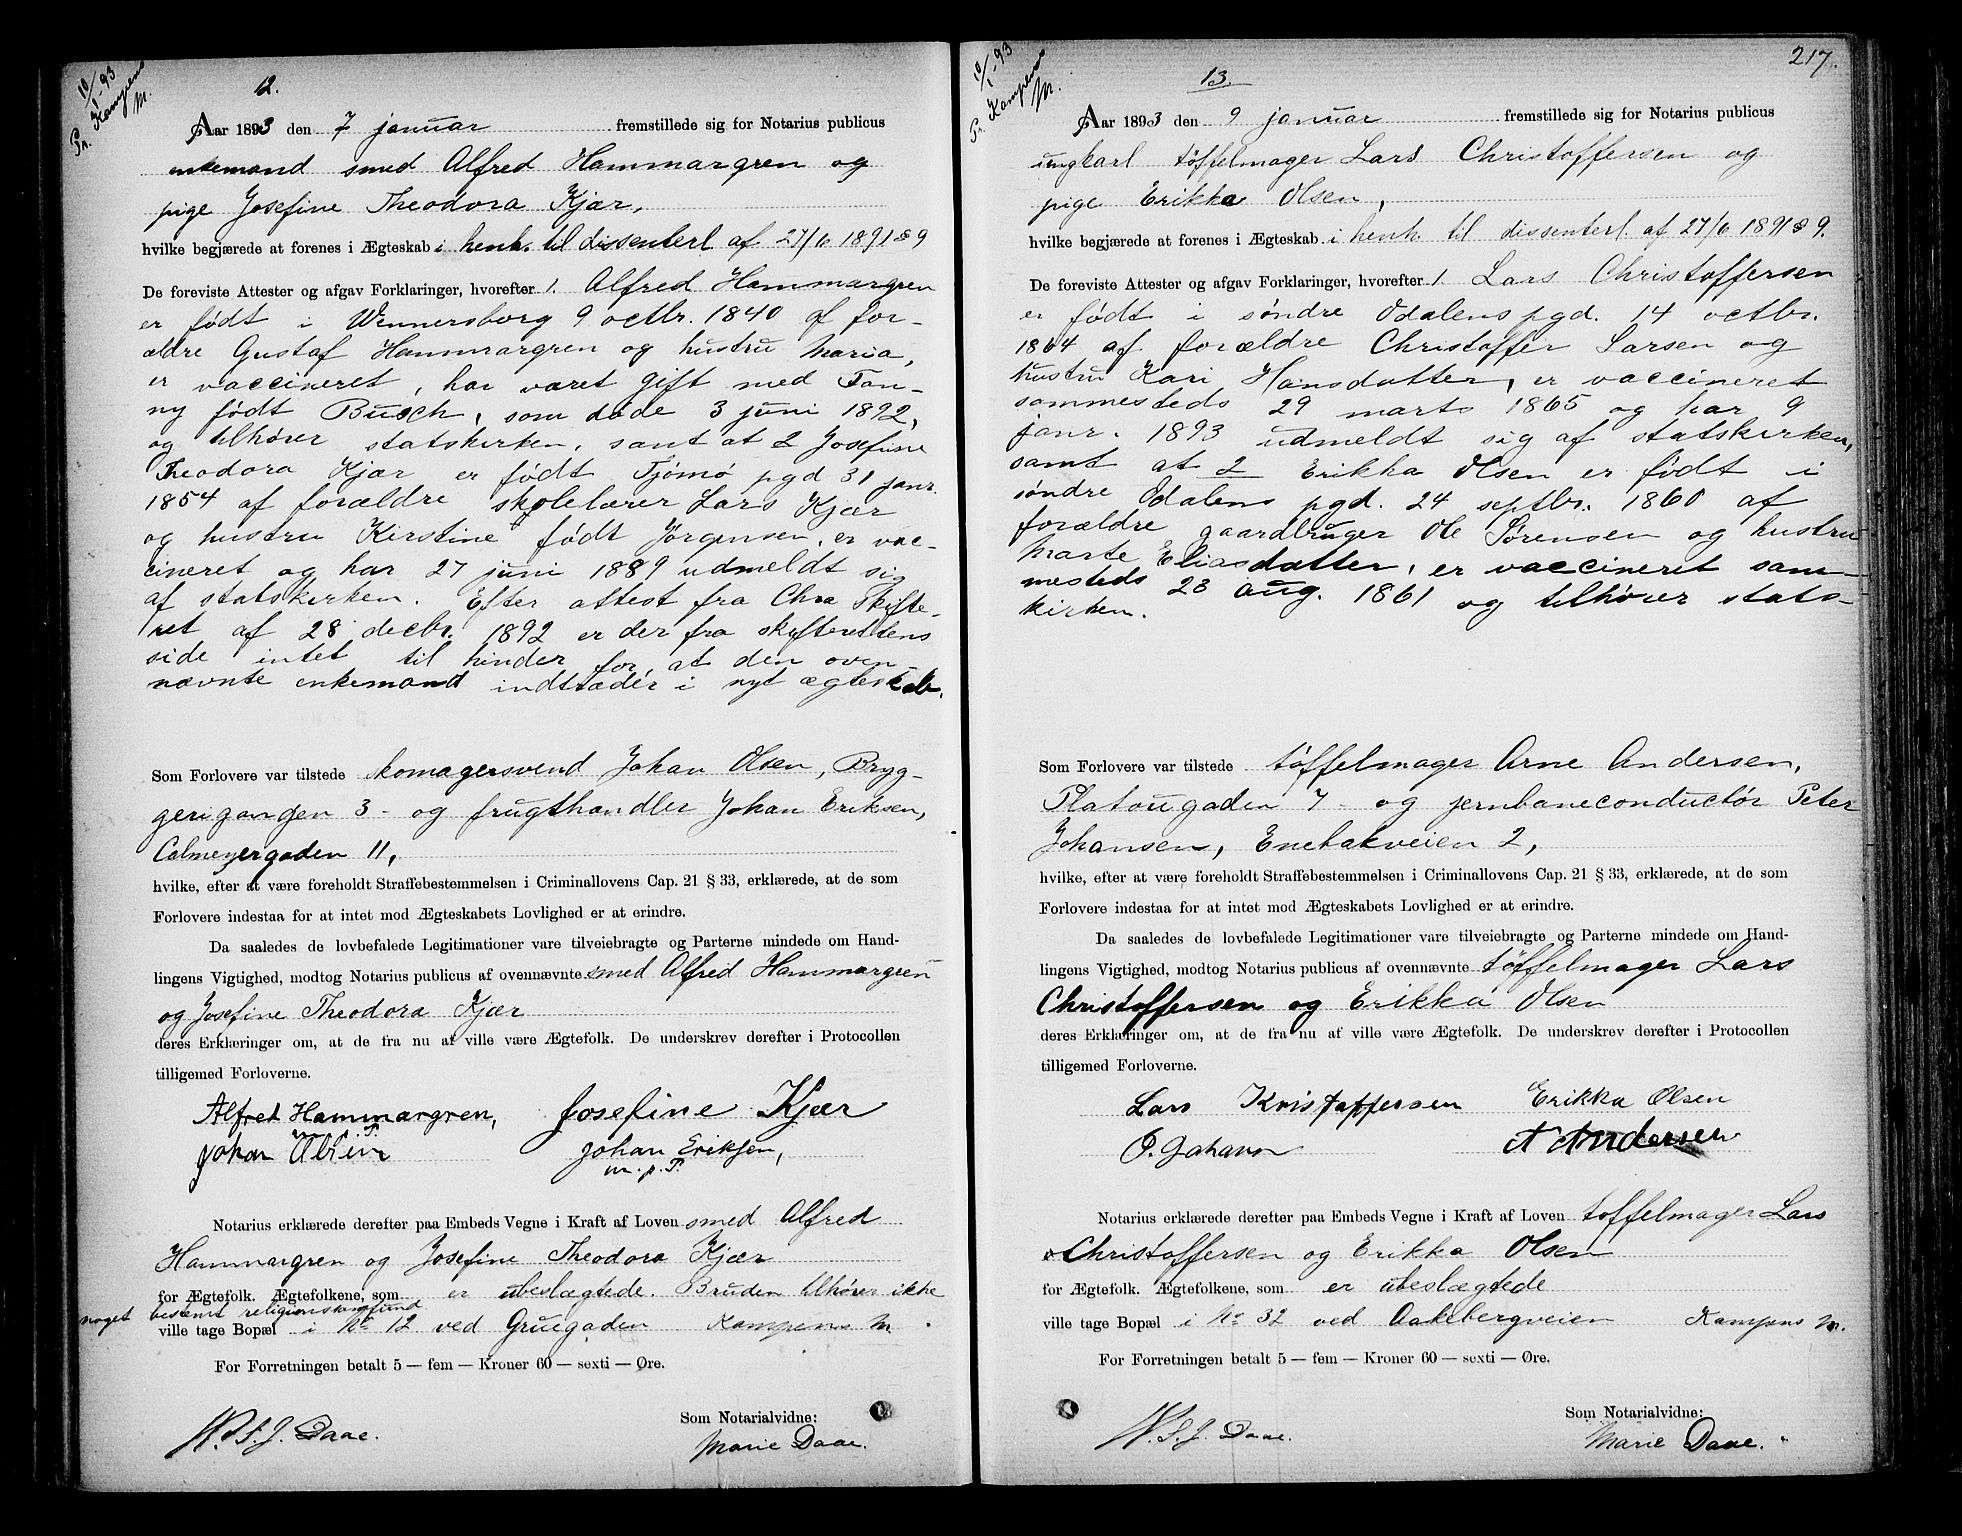 10/1-93
Pr. Kampens M.
12.
Aar 1893 den 7 januar fremstillede sig for Notarius publicus
enkemand smed Alfred Hammargren og
pige Josefine Theodora Kjær,
hvilke begjærede at forenes i Ægteskab i henh. til dissenterl af 27/6 1891 § 9
De foreviste Attester og afgav Forklaringer, hvorefter 1. Alfred Hammargren
er født i Wennersborg 9 octbr. 1840 af for-
ældre Gustaf Hammargren og hustru Maria,
er vaccineret, har været gift med Fan-
ny født Busch, som døde 3 juni 1892,
og tilhører statskirken, samt at 2 Josefine
Theodora Kjær er født Tjømø pgd 31 janr.
1854 af forældre skolelærer Lars Kjær
og hustru Kirstine født Jørgensen, er vac-
cineret og har 27 juni 1889 udmeldt sig
af statskirken. Efter attest fra Chra Skifte-
ret af 28 decbr. 1892 er der fra skifterettens
side intet til hinder for, at den oven-
nævnte enkemand indtræder i nyt ægteskab.
Som Forlovere var tilstede skomagersvend Johan Olsen, Bryg-
gerigangen 3 - og frugthandler Johan Eriksen,
Calmeyergaden 11,
hvilke, efter at være foreholdt Straffebestemmelsen i Criminallovens Cap. 21 § 33, erklærede, at de som
Forlovere indestaa for at intet mod Ægteskabets Lovlighed er at erindre.
Da saaledes de lovbefalede Legitimationer vare tilveiebragte og Parterne mindede om Hand-
lingens Vigtighed, modtog Notarius publicus af ovennævnte smed Alfred Hammargren
og Josefine Theodora Kjær
deres Erklæringer om, at de fra nu af ville være Ægtefolk. De underskrev derefter i Protocollen
tilligemed Forloverne.
Alfred Hammargren, Josefine Kjær
m. p. P.
Johan Olsen Johan Eriksen,
m. p. P.
Notarius erklærede derefter paa Embeds Vegne i Kraft af Loven smed Alfred
Hammargren og Josefine Theodora Kjær
for Ægtefolk. Ægtefolkene, som er ubeslægtede. Bruden tilhører ikke
noget bestemt religionssamfund
ville tage Bopæl i No 12 ved Gruegaden Kampens M.
For Forretningen betalt 5 — fem — Kroner 60 — sexti — Øre.
Som Notarialvidne:
W. S. J. Daae. Marie Daae.
217.
10/1-93
Pr. Kampens M.
13.
Aar 1893 den 9 januar fremstillede sig for Notarius publicus
ungkarl tøffelmager Lars Christoffersen og
pige Erikka Olsen,
hvilke begjærede at forenes i Ægteskab i henh til dissenterl. af 27/6 1891 § 9.
De foreviste Attester og afgav Forklaringer, hvorefter 1. Lars Christoffersen
er født i søndre Odalens pgd. 14 octbr.
1864 af forældre Christoffer Larsen og
hustru Kari Hansdatter, er vaccineret
sammesteds 29 marts 1865 og har 9
janr. 1893 udmeldt sig af statskirken,
samt at 2 Erikka Olsen er født i
søndre Odalens pgd. 24 septbr. 1860 af
forældre gaardbruger Ole Sørensen og hustru
Marte Eliasdatter, er vaccineret sam-
mesteds 23 aug. 1861 og tilhører stats-
kirken.
Som Forlovere var tilstede tøffelmager Arne Andersen,
Platougaden 7 - og jernbaneconductør Peter
Johansen, Enebakveien 2,
hvilke, efter at være foreholdt Straffebestemmelsen i Criminallovens Cap. 21 § 33, erklærede, at de som
Forlovere indestaa for at intet mod Ægteskabets Lovlighed er at erindre.
Da saaledes de lovbefalede Legitimationer vare tilveiebragte og Parterne mindede om Hand-
lingens Vigtighed, modtog Notarius publicus af ovennævnte tøffelmager Lars
Christoffersen og Erikka Olsen
deres Erklæringer om, at de fra nu af ville være Ægtefolk. De underskrev derefter i Protocollen
tilligemed Forloverne.
Lars Kristoffersen Erikka Olsen
P. Johansen A Andersen
Notarius erklærede derefter paa Embeds Vegne i Kraft af Loven tøffelmager Lars
Christoffersen og Erikka Olsen
for Ægtefolk. Ægtefolkene, som er ubeslægtede
ville tage Bopæl i No 32 ved Aakebergveien Kampens M.
For Forretningen betalt 5 — fem — Kroner 60 — sexti — Øre.
Som Notarialvidne:
W. S. J. Daae. Marie Daae.